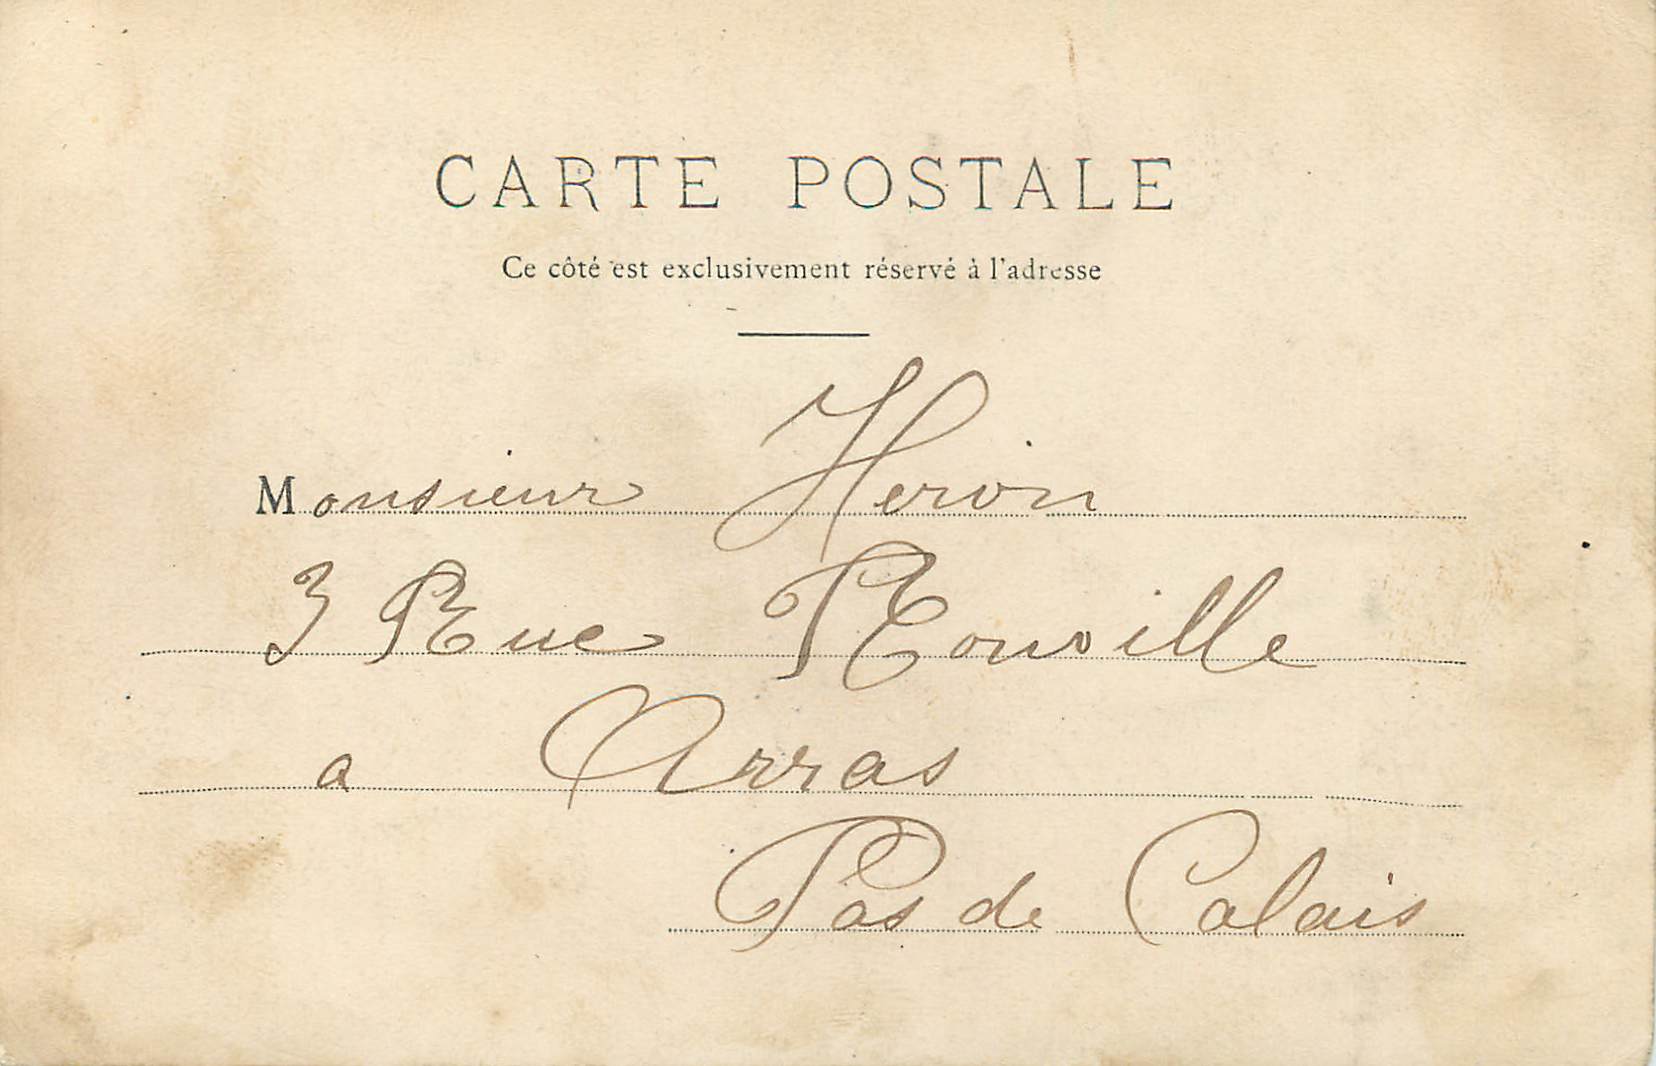 CARTE POSTALE
Ce côté est exclusivement réservé à l'adresse
Monsieur Heroin
3 Rue Ronville
a Arras
Pas de Calais